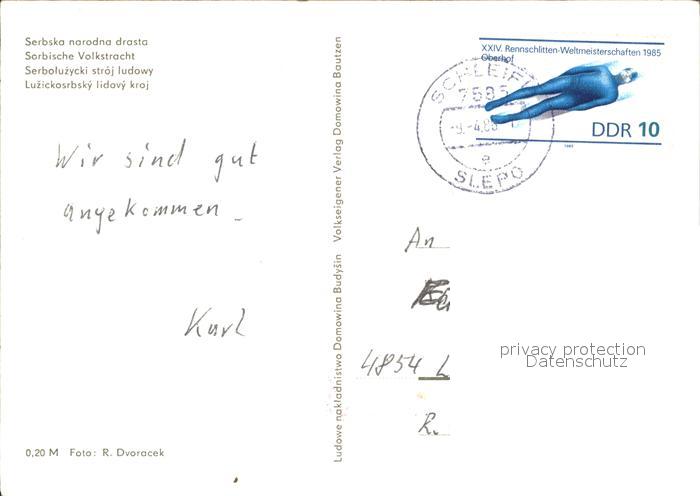 Serbska narodna drasta
Sorbische Volkstracht
Serbołużycki strój ludowy
Lužickosrbský lidový kroj
Wir sind gut
angekommen.
Karl
0,20 M Foto: R. Dvoracek
Ludowe nakładnistwo Domowina Budyšin Volkseigener Verlag Domowina Bautzen
XXIV. Rennschlitten-Weltmeisterschaften 1985
Oberhof
DDR 10
SLEPO
An
4854 L
R.
privacy protection
Datenschutz